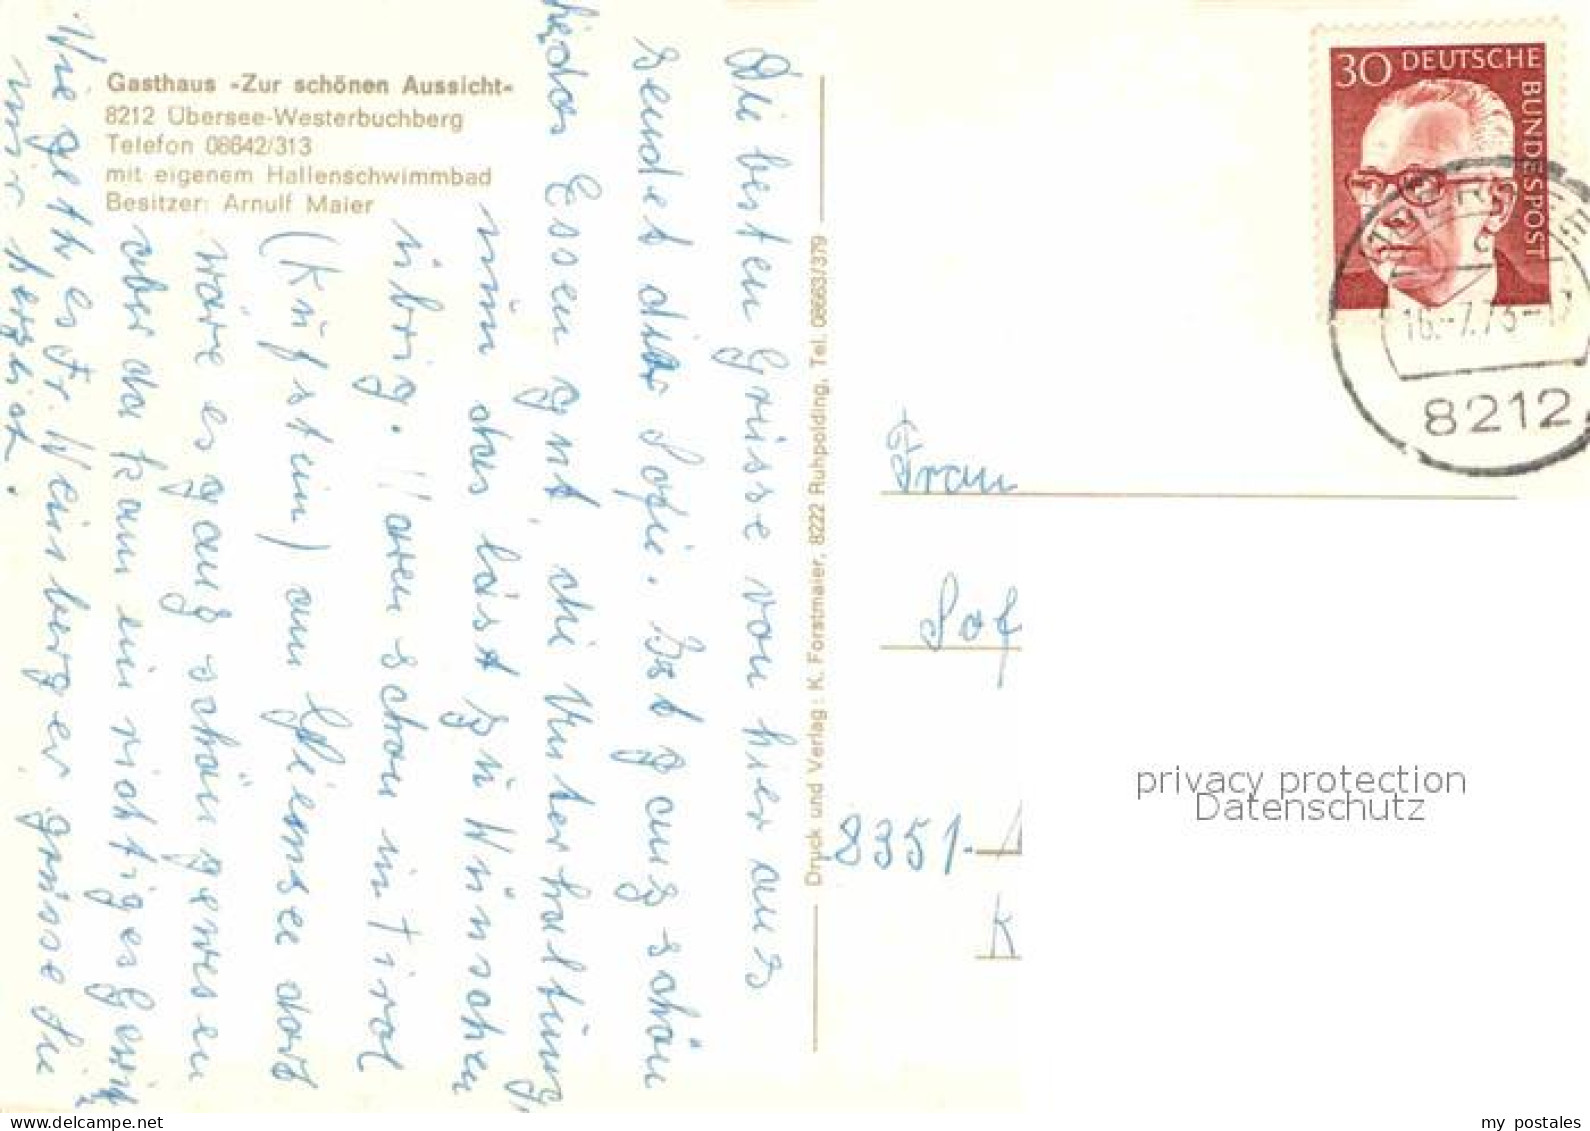 Gasthaus »Zur schönen Aussicht«
8212 Übersee-Westerbuchberg
Telefon 08642/313
mit eigenem Hallenschwimmbad
Besitzer: Arnulf Maier
Die besten Grüsse von hier aus
sendet dir Sofie. Ist ganz schön
hir das Essen gut, die Unterhaltung
nun das läst zu Wünschen
übrig. Waren schon in Tirol
(Küfstein) am Chiemsee dort
wäre es ganz schön gewesen
aber da kam ein richtiges Gewit
Wie geth es Fr. Weinsberger grüsse Sie
mir herzlich.
Druck und Verlag: K. Forstmaier, 8222 Ruhpolding, Tel. 08663/379
30 DEUTSCHE
BUNDESPOST
16.-7.73-
8212
Frau
Sof
8351-
K
privacy protection
Datenschutz
my postales